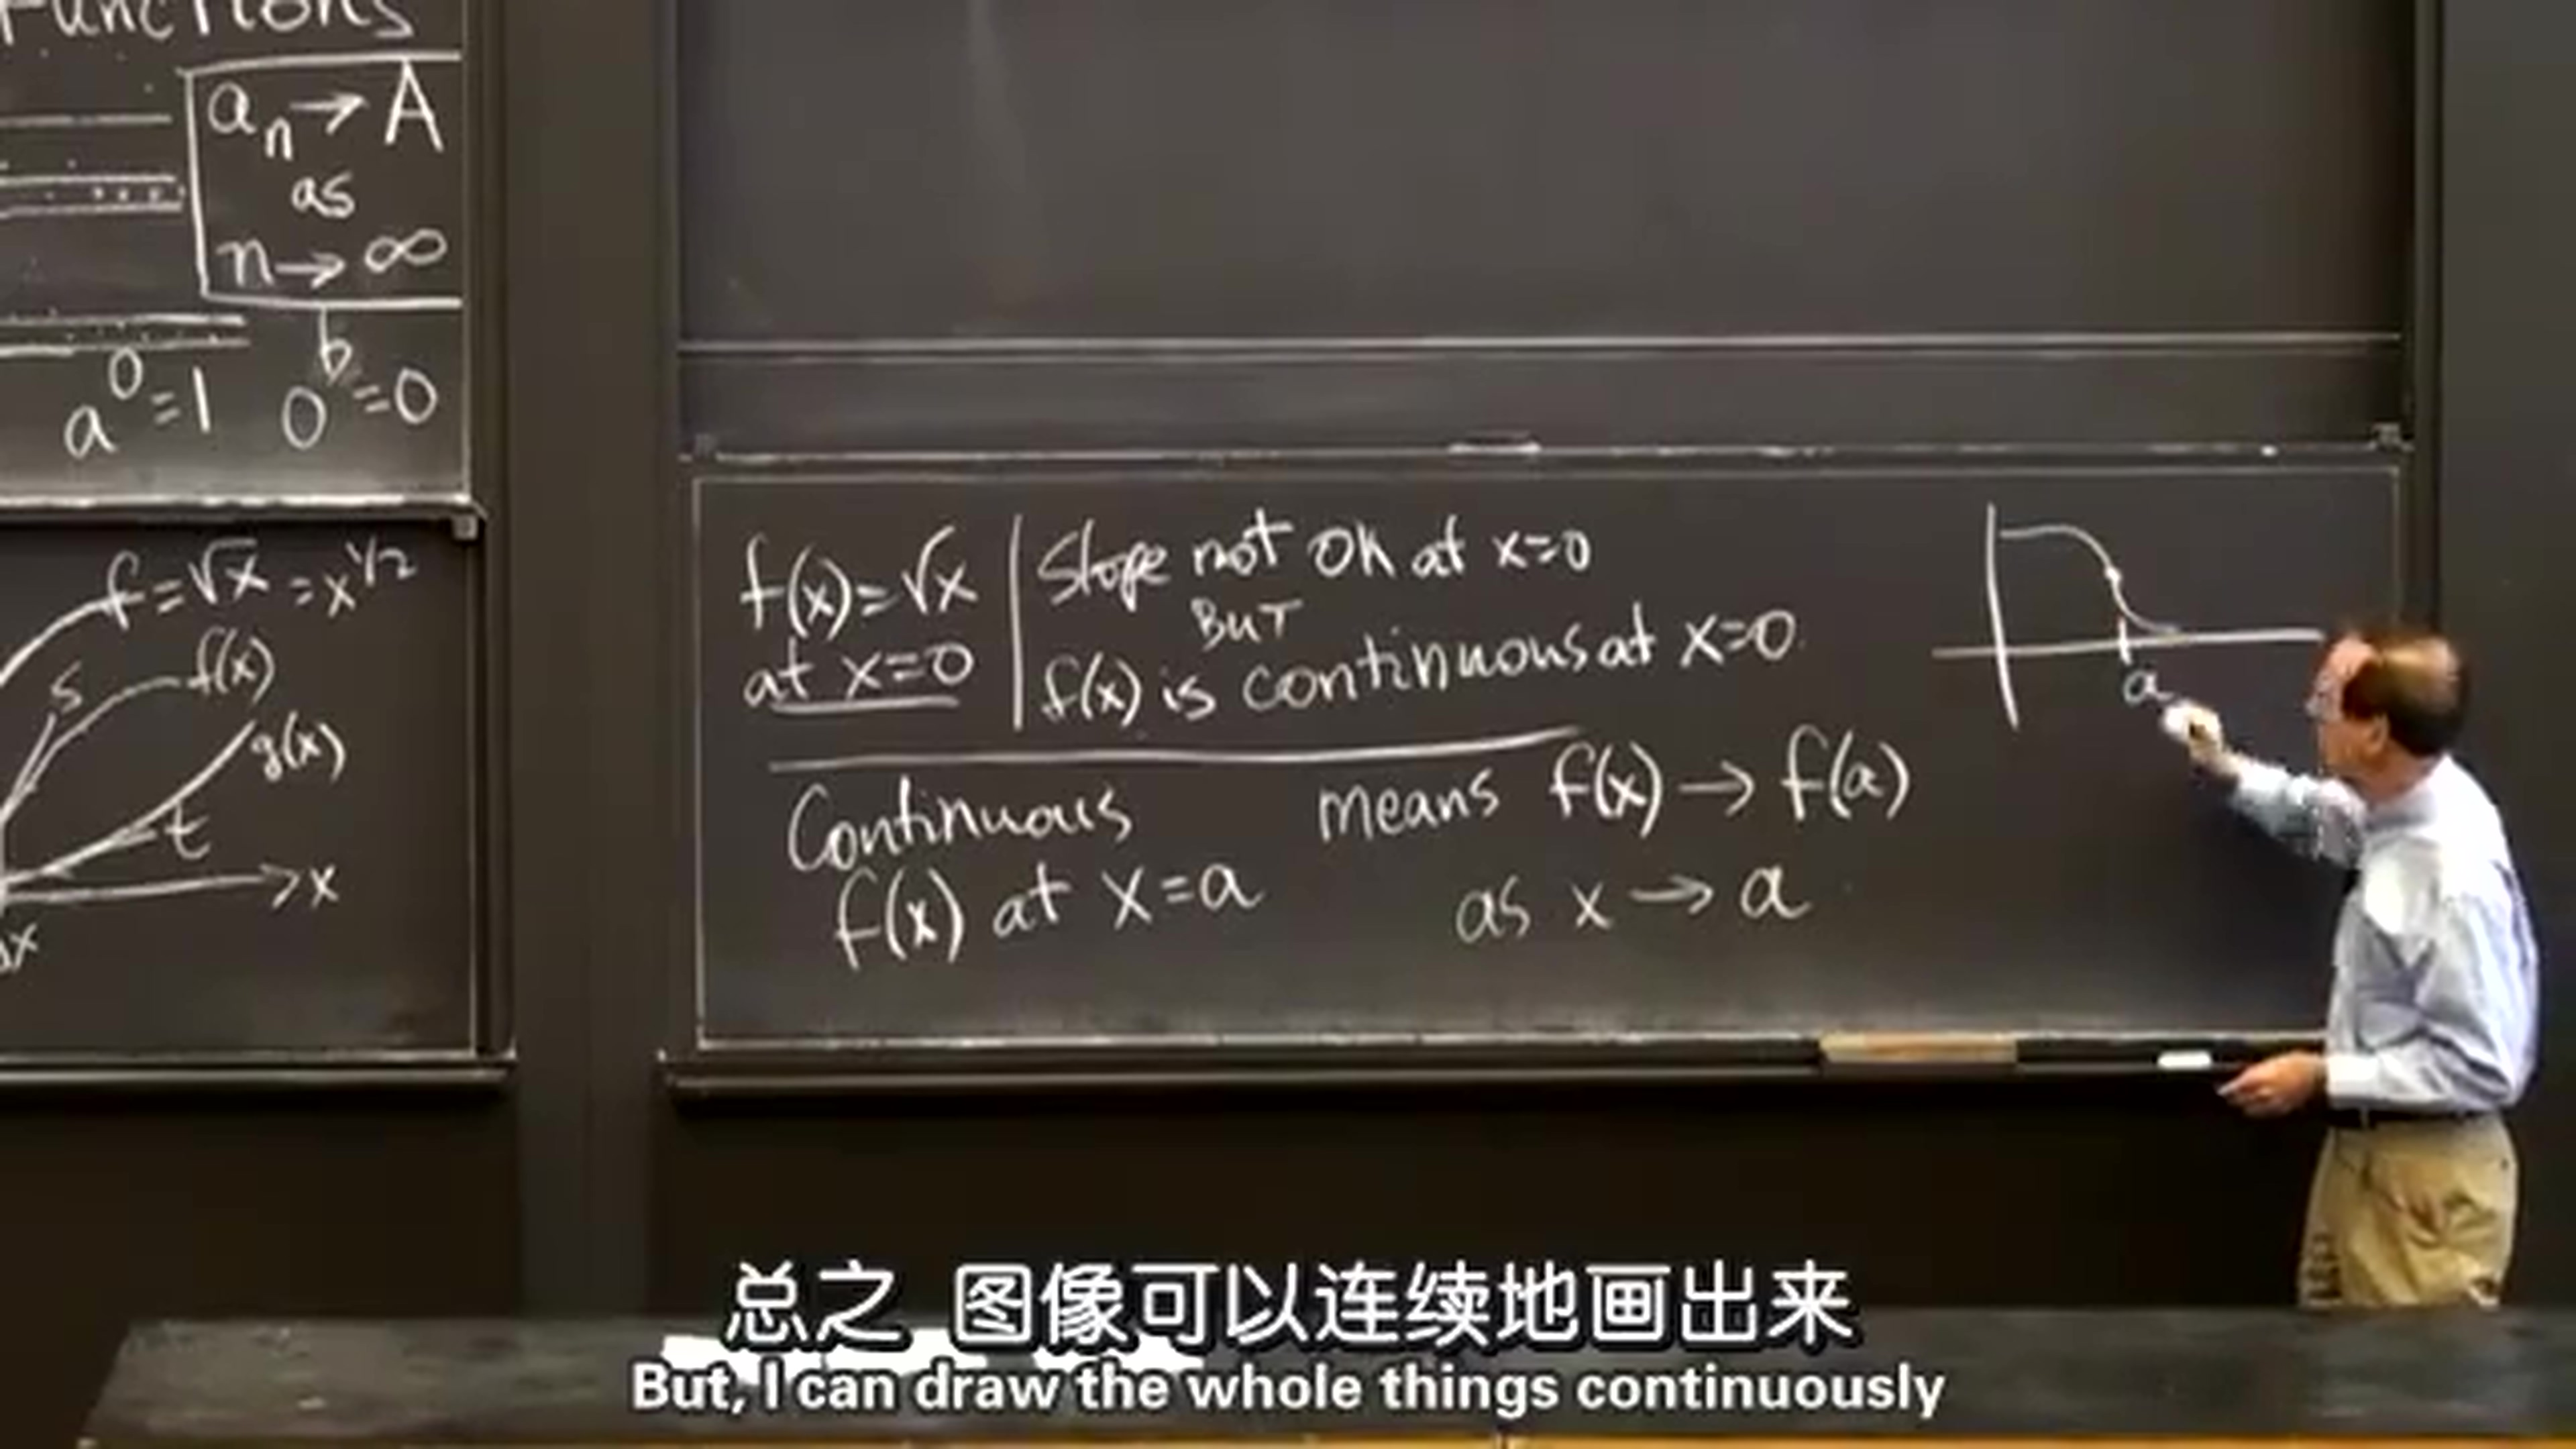 Functions
aₙ → A
as
n → ∞
a⁰ = 1 0ᵇ = 0
f = √x = x^1/2
s f(x)
g(x)
t
x
f(x) = √x
at x=0
Slope not OK at x=0
BUT
f(x) is continuous at x=0
a
Continuous means f(x) → f(a)
f(x) at x=a as x → a
总之 图像可以连续地画出来
But, I can draw the whole things continuously